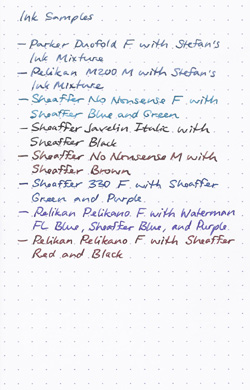 Ink Samples
- Parker Duofold F with Stefan's
Ink Mixture
- Pelikan M200 M with Stefan's
Ink Mixture
- Sheaffer No Nonsense F with
Sheaffer Blue and Green
- Sheaffer Javelin Italic with
Sheaffer Black
- Sheaffer No Nonsense M with
Sheaffer Brown
- Sheaffer 330 F with Sheaffer
Green and Purple
- Pelikan Pelikano F with Waterman
FL Blue, Sheaffer Blue, and Purple
- Pelikan Pelikano F with Sheaffer
Red and Black